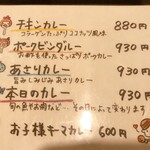 チキンカレー 880円
コラーゲンたっぷりココナッツ風味
ポークビンダルー 930円
お酢を使ったさっぱりポークカレー
あさりカレー 930円
旨みしみじみあさりカレー
本日のカレー 930円
旬の魚やお肉など… その日によって変わります
お子様キーマカレー 600円